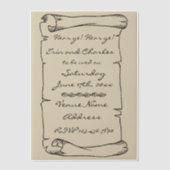 Harrys! Harrys!
Erin and Charles
to be wed on
Saturday
June 17th, 20xx
Venue Name
Address
RSVP 123-456-7890